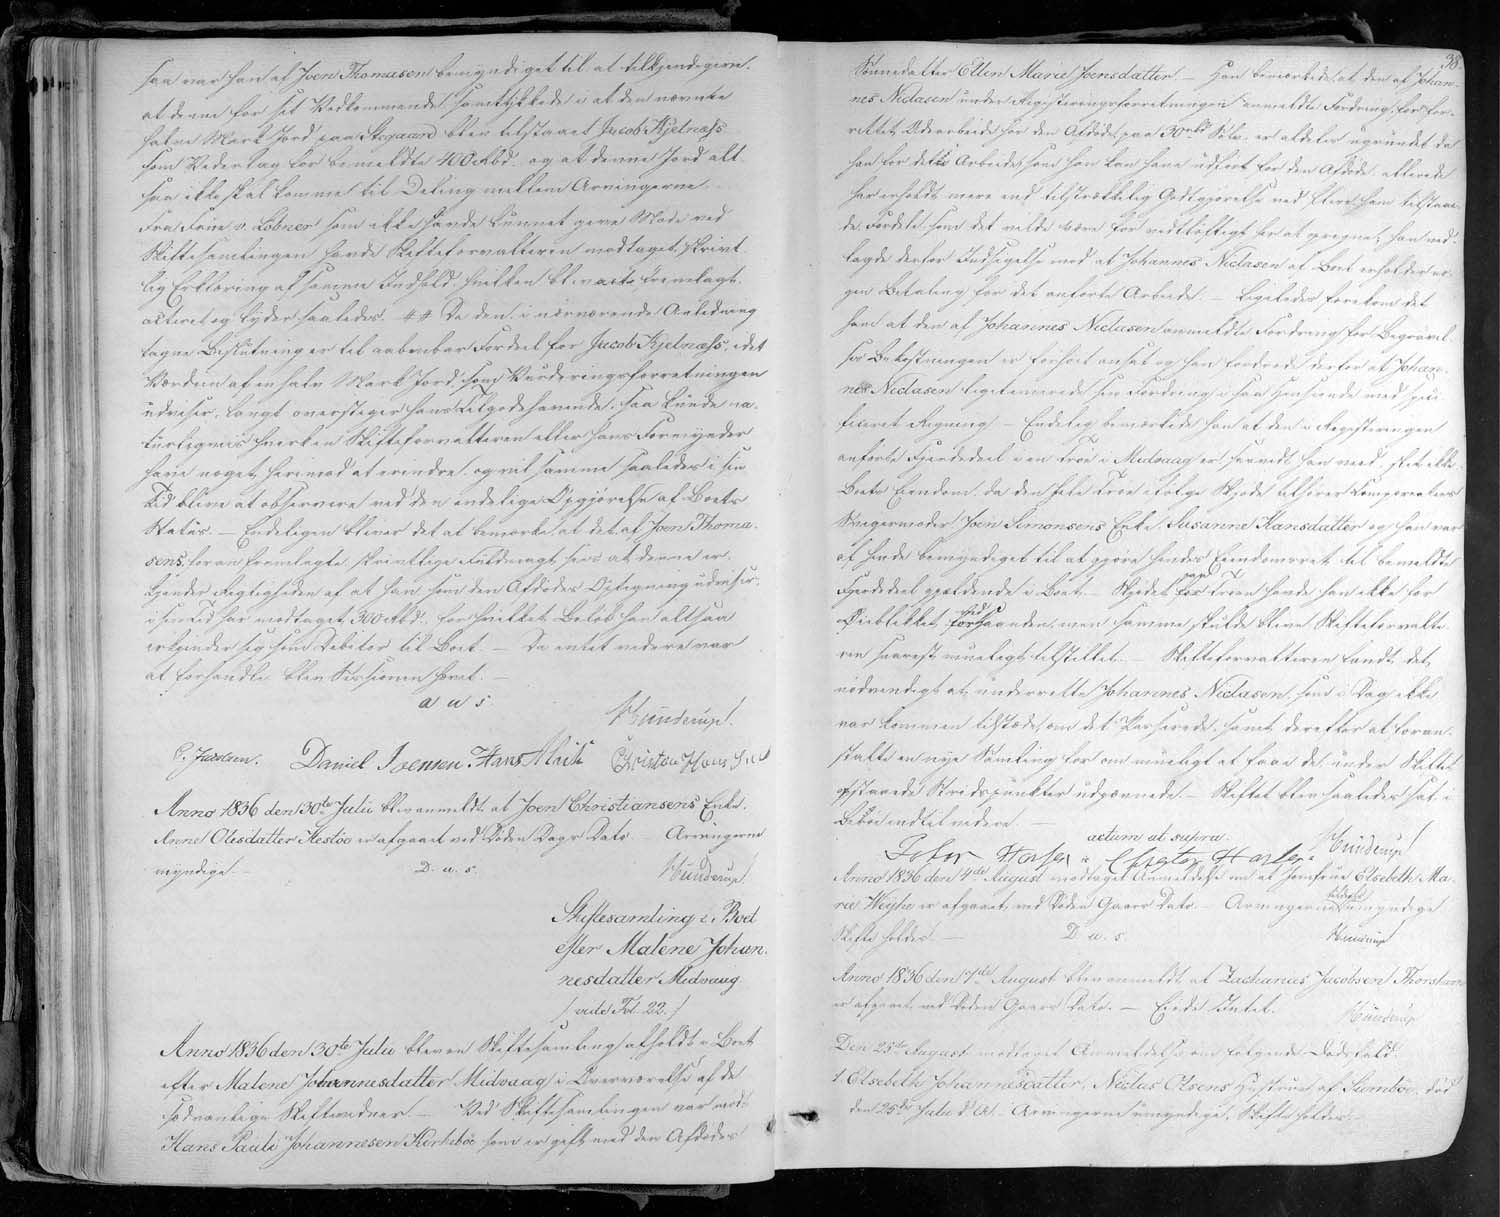 saa var han af Joen Thomasen bemyndiget til at tilkjendegive,
at denne for sit Vedkommende samtykkede i at den nævnte
halve Mark Jord paa Steigaard blev tilstaaet Jacob Kjelnæss
som Vederlag for bemeldte 400 Rbd. og at denne Jord alt-
saa ikke skal komme til Deling mellem Arvingerne. –
Fra Frue v. Løbner som ikke havde kunnet give Møde ved
Skiftesamlingen havde Skifteforvalteren modtaget skrivt-
lig Erklæring af samme Indhold, hvilken blev fremlagt,
acteret og lyder saaledes. ## Da den i nærværende Anledning
tagne Beslutning er til aabenbar Fordeel for Jacob Kjelnæss, idet
Værdien af en halv Mark Jord, som Vurderingsforretningen
udviser, langt overstiger hans Tilgodehavende, saa kunde na-
turligviis hverken Skifteforvalteren eller hans Formynder
have noget herimod at erindre, og vil samme saaledes i sin
Tid blive at observere ved den endelige Opgjørelse af Boets
Status. – Endeligen bliver det at bemærke at det af Joen Thoma-
sens foran fremlagte skrivtlige Fuldmagt sees at denne er-
kjender Rigtigheden af at han, som den Afdødes Optegning udviser,
i sin Tid har modtaget 300 Rbd., for hvilket Beløb han altsaa
erkjender sig som Debitor til Boet. – Da intet videre var
at forhandle blev Sessionen hævet. –
a u s.
Münderup.
C. Jacobsen. Daniel Joensen Hans Christen Hans
Anno 1836 den 30te Julii blev anmeldt at Joen Christiansens Enke
Anne Olesdatter Hestøe er afgaaet ved Døden Dags Dato – Arvingerne
myndige. –
D. u. s.
Münderup.
Skiftesamling i Boet
efter Malene Johan-
nesdatter Midvaag.
/ vide Fol. 22. /
Anno 1836 den 30te Julii blev en Skiftesamling afholdt i Boet
efter Malene Johannesdatter Midvaag i Overværelse af de
sædvanlige Skiftevidner. – Ved Skiftesamlingen var mødt
Hans Pauli Johannesen Kirkebøe som er gift med den Afdødes
38.
Sønnedatter Ellen Marie Joensdatter. – Han bemærkede, at den af Johan-
nes Niclasen under Registreringsforretningen anmeldte Fordring for for-
rettet Udearbeide for den Afdøde, paa 30 Rbd Sølv, er aldeles ugrundet da
han for det Arbeide, som han kan have udført for den Afdøde, allerede
har erholdt mere end tilstrækkelig Godtgjørelse ved flere ham tilstaae-
de Fordele, som det vilde være for vidtløftigt her at opregne; han ned-
lagde derfor Indsigelse mod at Johannes Niclasen af Boet erholder no-
gen Betaling for det anførte Arbeide. – Ligeledes forekom det
ham at den af Johannes Niclasen anmeldte Fordring for Begravel-
ses Bekostningen er for høit ansat og han fordrede derfor at Johan-
nes Niclasen legitimerede sin Fordring i saa Henseende med speci-
ficeret Regning. – Endelig bemærkede han at den i Registreringen
anførte Fjerdedeel i en Troe i Midvaag er, saavidt han veed, slet ikke
Boets Eiendom, da den hele Troe ifølge Skjøde tilhører Comparentens
Svigermoder Joen Simonsens Enke Susanne Hansdatter og han var
af hende bemyndiget til at gjøre hendes Eiendomsret til bemeldte
Fjerdedeel gjældende i Boet. – Skjødet paa Troen havde han ikke for
Øieblikket ved haanden, men samme skulde blive Skifteforvalte-
ren snarest mueligt tilstillet. – Skifteforvalteren fandt det
nødvendigt at underrette Johannes Niclasen, som i Dag ikke
var kommen tilstede, om det Passerede, samt derefter at foran-
stalte en nye Samling for om mueligt at faae de under Skiftet
opstaaede Stridspunkter udjævnede. – Skiftet blev saaledes sat i
Beroe indtil videre. –
actum ut supra.
Münderup
Anno 1836 den 4de August modtaget Anmeldelse om at Jomfrue Elsebeth Ma-
rie Weyhe er afgaaet ved Døden Gaars Dato. – Arvingerne umyndige
Skifte holdes. –
D. u. s.
Münderup
Anno 1836 den 7de August blev anmeldt at Zacharias Jacobsen Thorshavn
er afgaaet ved Døden Gaars Dato. – Eiede Intet.
Münderup
Den 25de August modtaget Anmeldelse om følgende Dødsfald:
1. Elsebeth Johannesdatter, Niclas Olsens Hustrue af Sumbøe, død
den 25de Julii d. A. Arvingerne umyndige, Skifte holdes. –